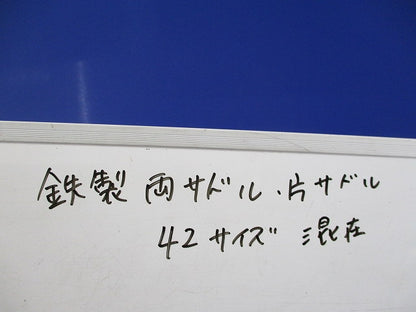 鉄製 両サドル・片サドル
42サイズ 混在